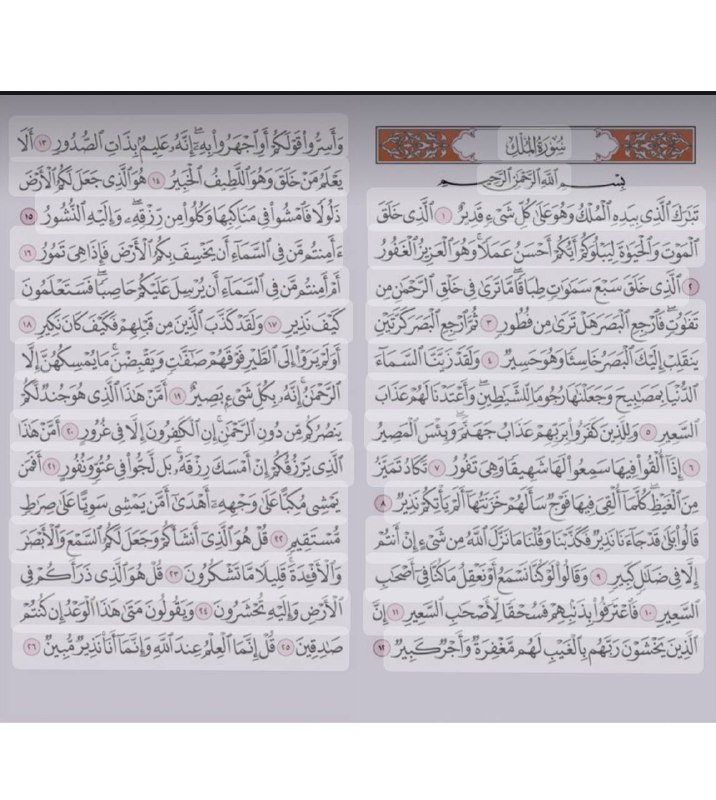 سُورَةُ المُلْكِ
بِسْمِ ٱللَّهِ ٱلرَّحْمَٰنِ ٱلرَّحِيمِ
تَبَٰرَكَ ٱلَّذِى بِيَدِهِ ٱلْمُلْكُ وَهُوَ عَلَىٰ كُلِّ شَىْءٍ قَدِيرٌ ١ ٱلَّذِى خَلَقَ
ٱلْمَوْتَ وَٱلْحَيَوٰةَ لِيَبْلُوَكُمْ أَيُّكُمْ أَحْسَنُ عَمَلًا ۚ وَهُوَ ٱلْعَزِيزُ ٱلْغَفُورُ
٢ ٱلَّذِى خَلَقَ سَبْعَ سَمَٰوَٰتٍ طِبَاقًا ۖ مَّا تَرَىٰ فِى خَلْقِ ٱلرَّحْمَٰنِ مِن
تَفَٰوُتٍ ۖ فَٱرْجِعِ ٱلْبَصَرَ هَلْ تَرَىٰ مِن فُطُورٍ ٣ ثُمَّ ٱرْجِعِ ٱلْبَصَرَ كَرَّتَيْنِ
يَنقَلِبْ إِلَيْكَ ٱلْبَصَرُ خَاسِئًا وَهُوَ حَسِيرٌ ٤ وَلَقَدْ زَيَّنَّا ٱلسَّمَآءَ
ٱلدُّنْيَا بِمَصَٰبِيحَ وَجَعَلْنَٰهَا رُجُومًا لِّلشَّيَٰطِينِ ۖ وَأَعْتَدْنَا لَهُمْ عَذَابَ
ٱلسَّعِيرِ ٥ وَلِلَّذِينَ كَفَرُوا۟ بِرَبِّهِمْ عَذَابُ جَهَنَّمَ ۖ وَبِئْسَ ٱلْمَصِيرُ
٦ إِذَآ أُلْقُوا۟ فِيهَا سَمِعُوا۟ لَهَا شَهِيقًا وَهِىَ تَفُورُ ٧ تَكَادُ تَمَيَّزُ
مِنَ ٱلْغَيْظِ ۖ كُلَّمَآ أُلْقِىَ فِيهَا فَوْجٌ سَأَلَهُمْ خَزَنَتُهَآ أَلَمْ يَأْتِكُمْ نَذِيرٌ ٨
قَالُوا۟ بَلَىٰ قَدْ جَآءَنَا نَذِيرٌ فَكَذَّبْنَا وَقُلْنَا مَا نَزَّلَ ٱللَّهُ مِن شَىْءٍ إِنْ أَنتُمْ
إِلَّا فِى ضَلَٰلٍ كَبِيرٍ ٩ وَقَالُوا۟ لَوْ كُنَّا نَسْمَعُ أَوْ نَعْقِلُ مَا كُنَّا فِىٓ أَصْحَٰبِ
ٱلسَّعِيرِ ١٠ فَٱعْتَرَفُوا۟ بِذَنۢبِهِمْ فَسُحْقًا لِّأَصْحَٰبِ ٱلسَّعِيرِ ١١ إِنَّ
ٱلَّذِينَ يَخْشَوْنَ رَبَّهُم بِٱلْغَيْبِ لَهُم مَّغْفِرَةٌ وَأَجْرٌ كَبِيرٌ ١٢
وَأَسِرُّوا۟ قَوْلَكُمْ أَوِ ٱجْهَرُوا۟ بِهِۦٓ ۖ إِنَّهُۥ عَلِيمٌۢ بِذَاتِ ٱلصُّدُورِ ١٣ أَلَا
يَعْلَمُ مَنْ خَلَقَ وَهُوَ ٱللَّطِيفُ ٱلْخَبِيرُ ١٤ هُوَ ٱلَّذِى جَعَلَ لَكُمُ ٱلْأَرْضَ
ذَلُولًا فَٱمْشُوا۟ فِى مَنَاكِبِهَا وَكُلُوا۟ مِن رِّزْقِهِۦ ۖ وَإِلَيْهِ ٱلنُّشُورُ ١٥
ءَأَمِنتُم مَّن فِى ٱلسَّمَآءِ أَن يَخْسِفَ بِكُمُ ٱلْأَرْضَ فَإِذَا هِىَ تَمُورُ ١٦
أَمْ أَمِنتُم مَّن فِى ٱلسَّمَآءِ أَن يُرْسِلَ عَلَيْكُمْ حَاصِبًا ۖ فَسَتَعْلَمُونَ
كَيْفَ نَذِيرِ ١٧ وَلَقَدْ كَذَّبَ ٱلَّذِينَ مِن قَبْلِهِمْ فَكَيْفَ كَانَ نَكِيرِ ١٨
أَوَلَمْ يَرَوْا۟ إِلَى ٱلطَّيْرِ فَوْقَهُمْ صَٰٓفَّٰتٍ وَيَقْبِضْنَ ۚ مَا يُمْسِكُهُنَّ إِلَّا
ٱلرَّحْمَٰنُ ۚ إِنَّهُۥ بِكُلِّ شَىْءٍۭ بَصِيرٌ ١٩ أَمَّنْ هَٰذَا ٱلَّذِى هُوَ جُندٌ لَّكُمْ
يَنصُرُكُم مِّن دُونِ ٱلرَّحْمَٰنِ ۚ إِنِ ٱلْكَٰفِرُونَ إِلَّا فِى غُرُورٍ ٢٠ أَمَّنْ هَٰذَا
ٱلَّذِى يَرْزُقُكُمْ إِنْ أَمْسَكَ رِزْقَهُۥ ۚ بَل لَّجُّوا۟ فِى عُتُوٍّ وَنُفُورٍ ٢١ أَفَمَن
يَمْشِى مُكِبًّا عَلَىٰ وَجْهِهِۦٓ أَهْدَىٰٓ أَمَّن يَمْشِى سَوِيًّا عَلَىٰ صِرَٰطٍ
مُّسْتَقِيمٍ ٢٢ قُلْ هُوَ ٱلَّذِىٓ أَنشَأَكُمْ وَجَعَلَ لَكُمُ ٱلسَّمْعَ وَٱلْأَبْصَٰرَ
وَٱلْأَفْـِٔدَةَ ۖ قَلِيلًا مَّا تَشْكُرُونَ ٢٣ قُلْ هُوَ ٱلَّذِى ذَرَأَكُمْ فِى
ٱلْأَرْضِ وَإِلَيْهِ تُحْشَرُونَ ٢٤ وَيَقُولُونَ مَتَىٰ هَٰذَا ٱلْوَعْدُ إِن كُنتُمْ
صَٰدِقِينَ ٢٥ قُلْ إِنَّمَا ٱلْعِلْمُ عِندَ ٱللَّهِ وَإِنَّمَآ أَنَا۠ نَذِيرٌ مُّبِينٌ ٢٦